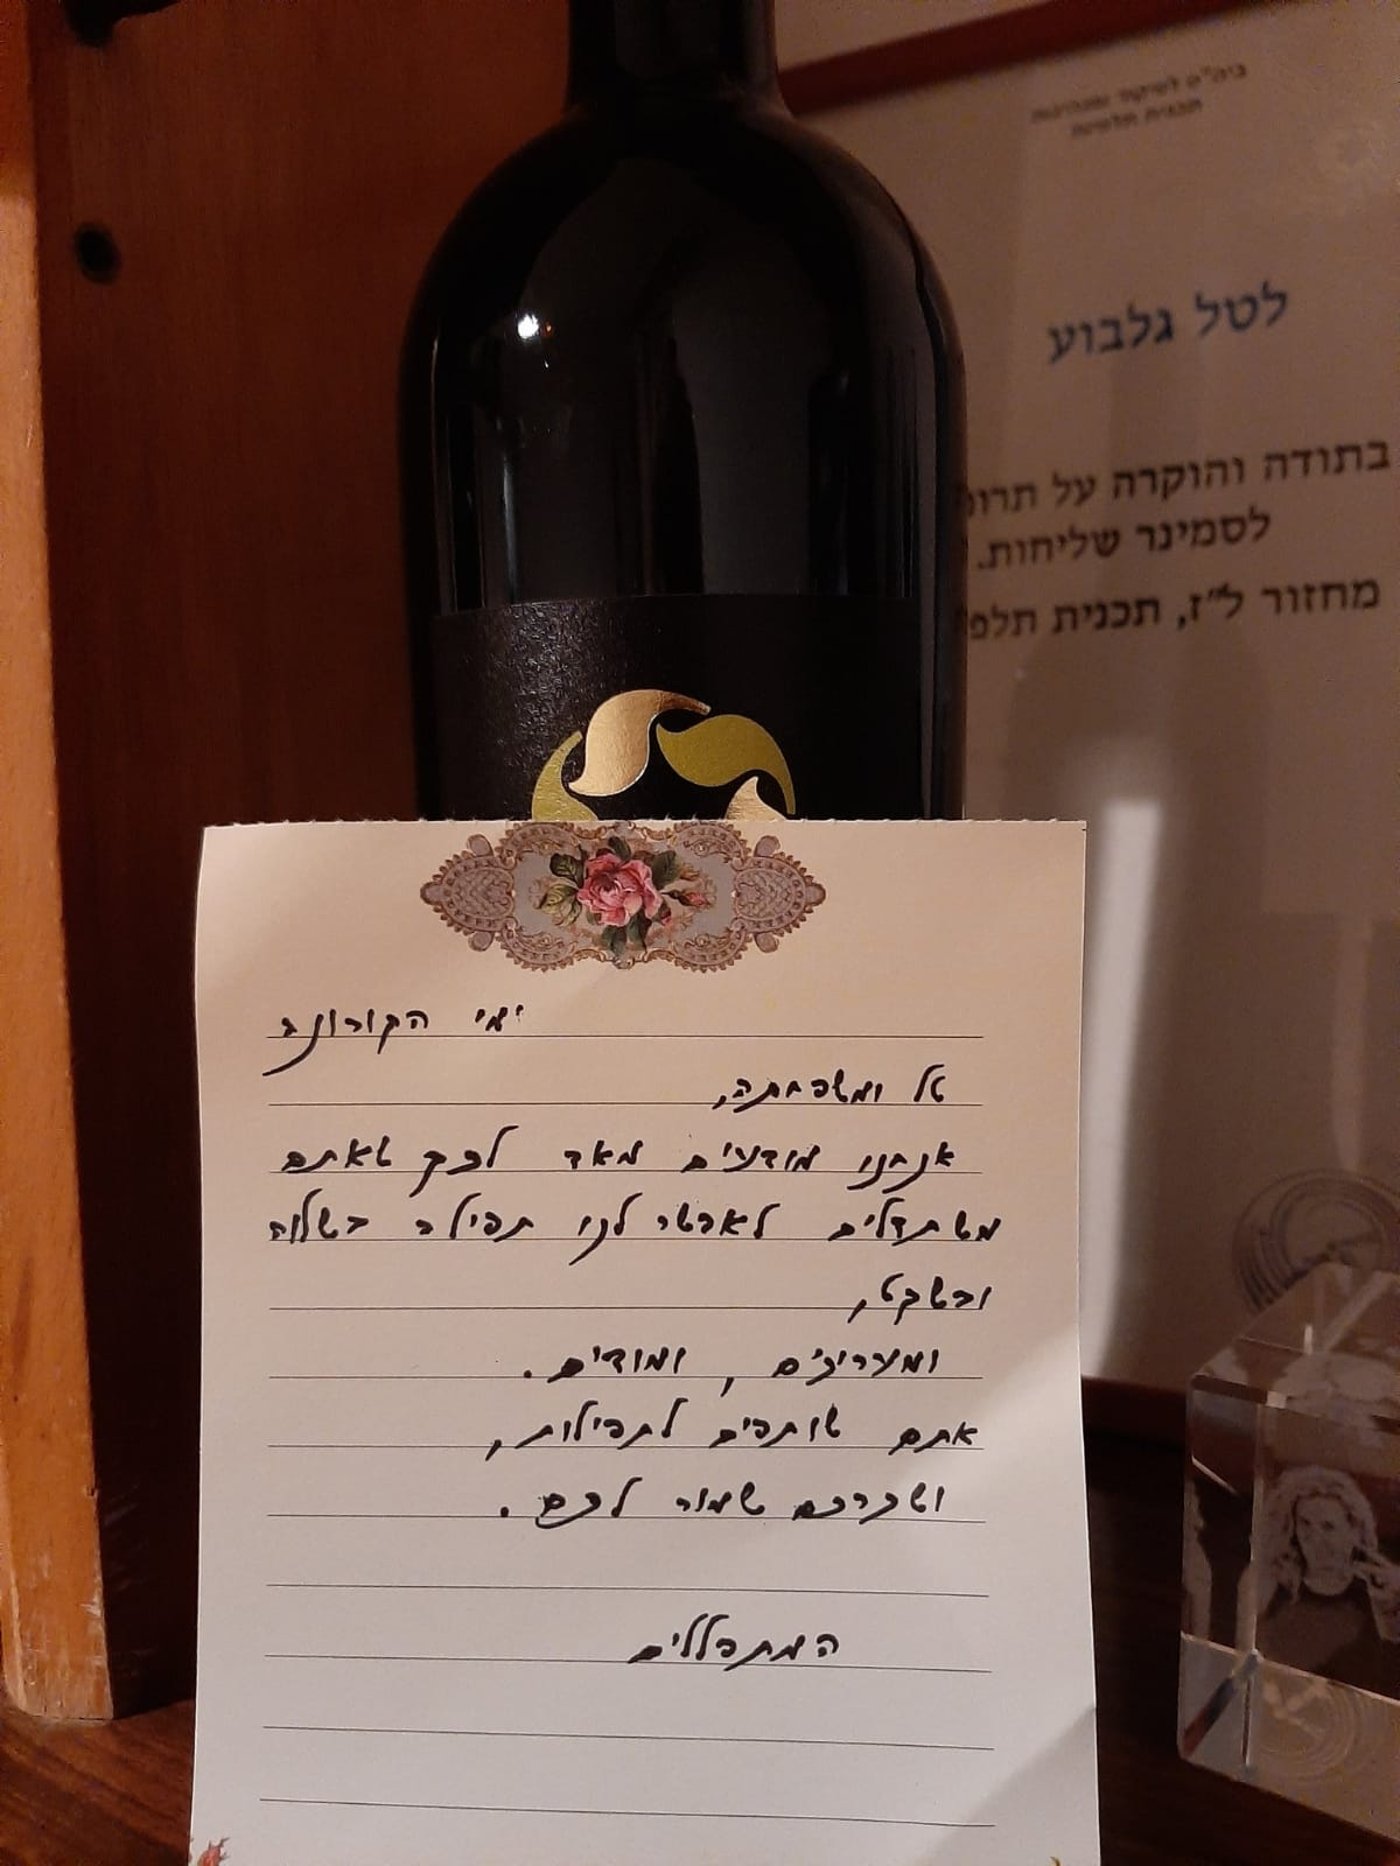 ביה"ס לפיקוד ומנהיגות
תכנית תלפיות
לטל גלבוע
בתודה והוקרה על
לסמינר שליחות.
מחזור ל"ז, תכנית
ימי הקורונה
טל ומשפחתה,
אנחנו מודעים מאד לכך שאתם
משתדלים לאפשר לנו תפילה בשלווה
ובשקט,
ומעריכים, ומודים.
אתם שותפים לתפילות,
ושכרכם שמור לכם.
המתפללים